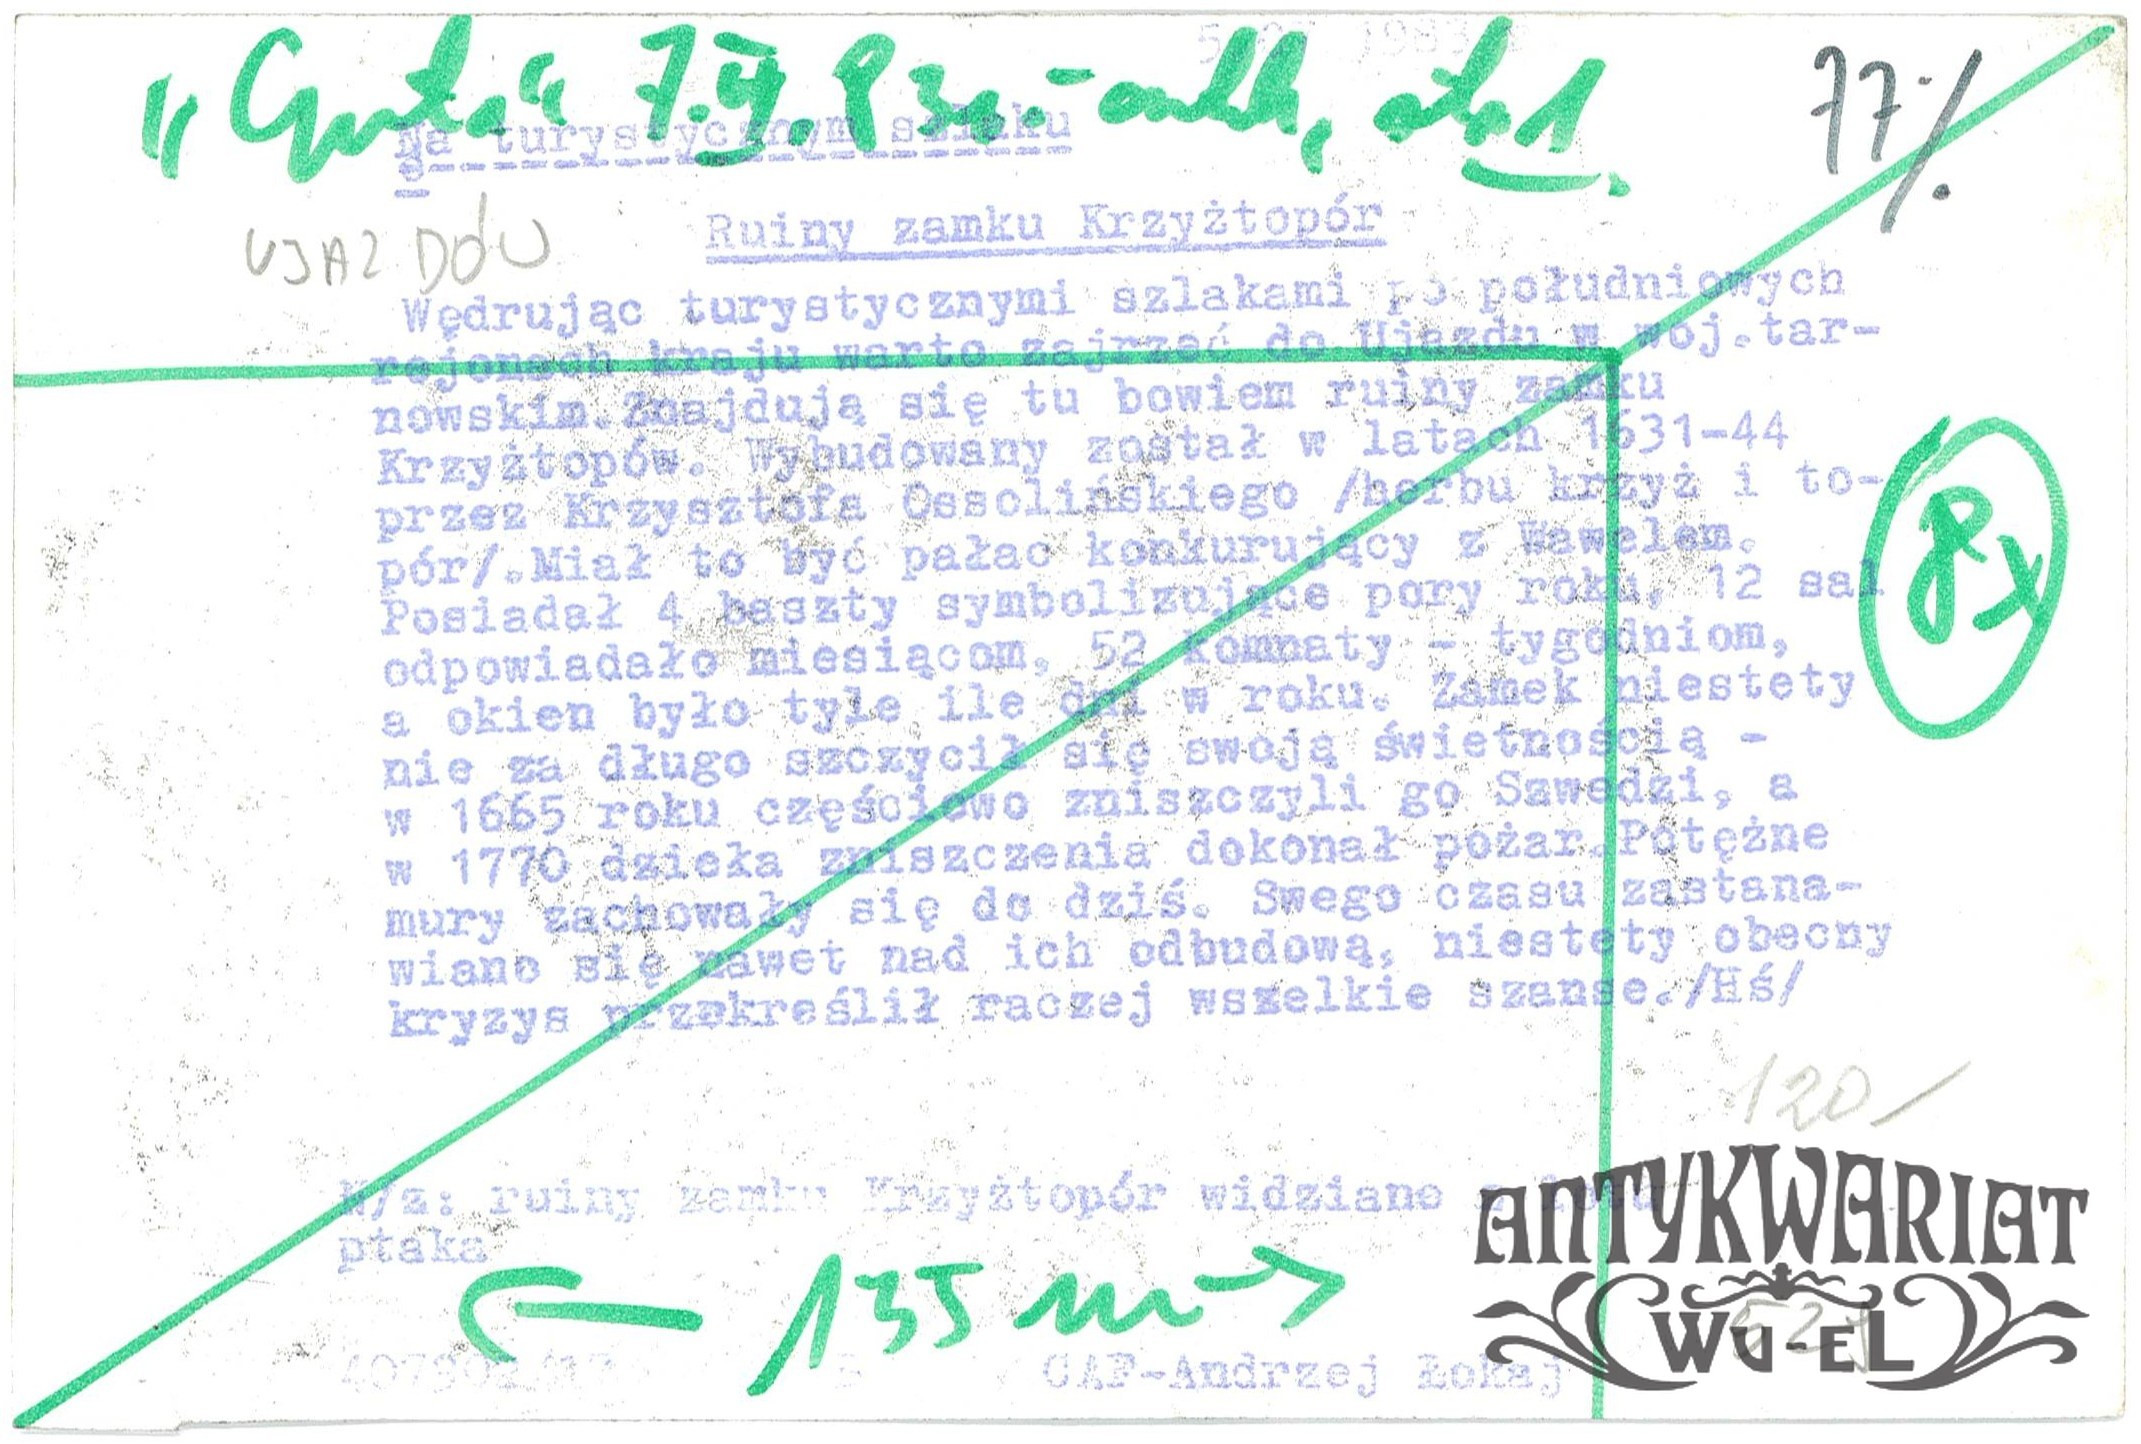 1983
77%
Na turystycznym szlaku
UJAZDÓW
Ruiny zamku Krzyżtopór
Wędrując turystycznymi szlakami po południowych
rejonach kraju warto zajrzeć do Ujazdu w woj.tar-
nowskim.Znajdują się tu bowiem ruiny zamku
Krzyżtopów. Wybudowany został w latach 1631-44
przez Krzysztofa Ossolińskiego /herbu krzyż i to-
pór/.Miał to być pałac konkurujący z Wawelem.
Posiadał 4 baszty symbolizujące pory roku, 12 sal
odpowiadało miesiącom, 52 komnaty - tygodniom,
a okien było tyle ile dni w roku. Zamek niestety
nie za długo szczycił się swoją świetnością -
w 1665 roku częściowo zniszczyli go Szwedzi, a
w 1770 dzieła zniszczenia dokonał pożar.Potężne
mury zachowały się do dziś. Swego czasu zastana-
wiano się nawet nad ich odbudową, niestety obecny
kryzys przekreślił raczej wszelkie szanse./HŚ/
120-
N/z: ruiny zamku Krzyżtopór widziane z lotu
ptaka
135 m
CAF-Andrzej Łokaj
ANTYKWARIAT
WU-EL